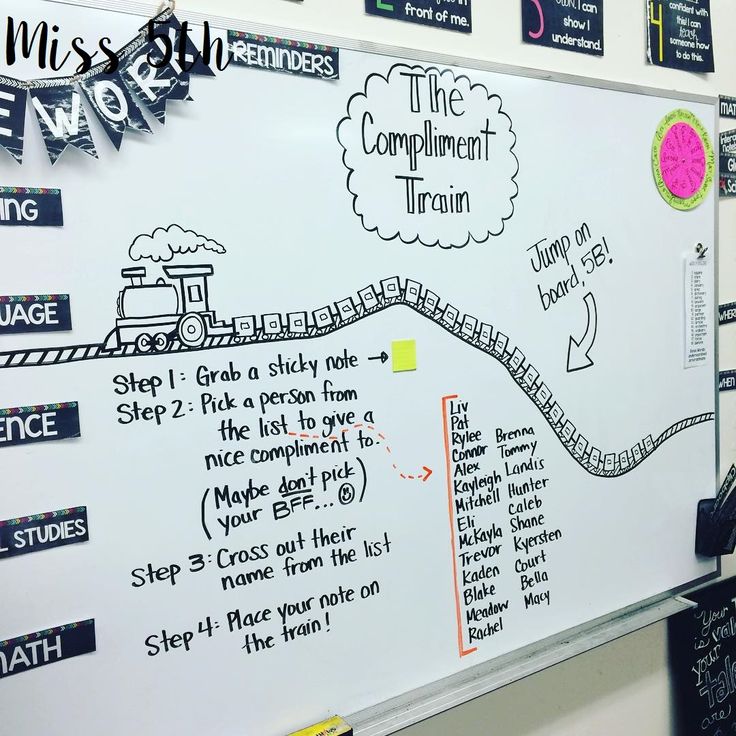 Miss 5th
EWOR
REMINDERS
in front of me.
5
I can
show I
understand.
4
confident with
this! I can
teach
someone how
to do this.
The
Compliment
Train
Jump on
board, 5B!
Step 1: Grab a sticky note →
Step 2: Pick a person from
the list to give a
nice compliment to.
(Maybe don't pick
your BFF... ☺)
Step 3: Cross out their
name from the list
Step 4: Place your note on
the train!
Liv
Pat
Rylee Brenna
Connor Tommy
Alex Landis
Kayleigh Hunter
Mitchell Caleb
Eli Shane
McKayla Kyersten
Trevor Court
Kaden Bella
Blake Macy
Meadow
Rachel
ING
UAGE
ENCE
L STUDIES
MATH
MAT
WHERE
WHEN
your